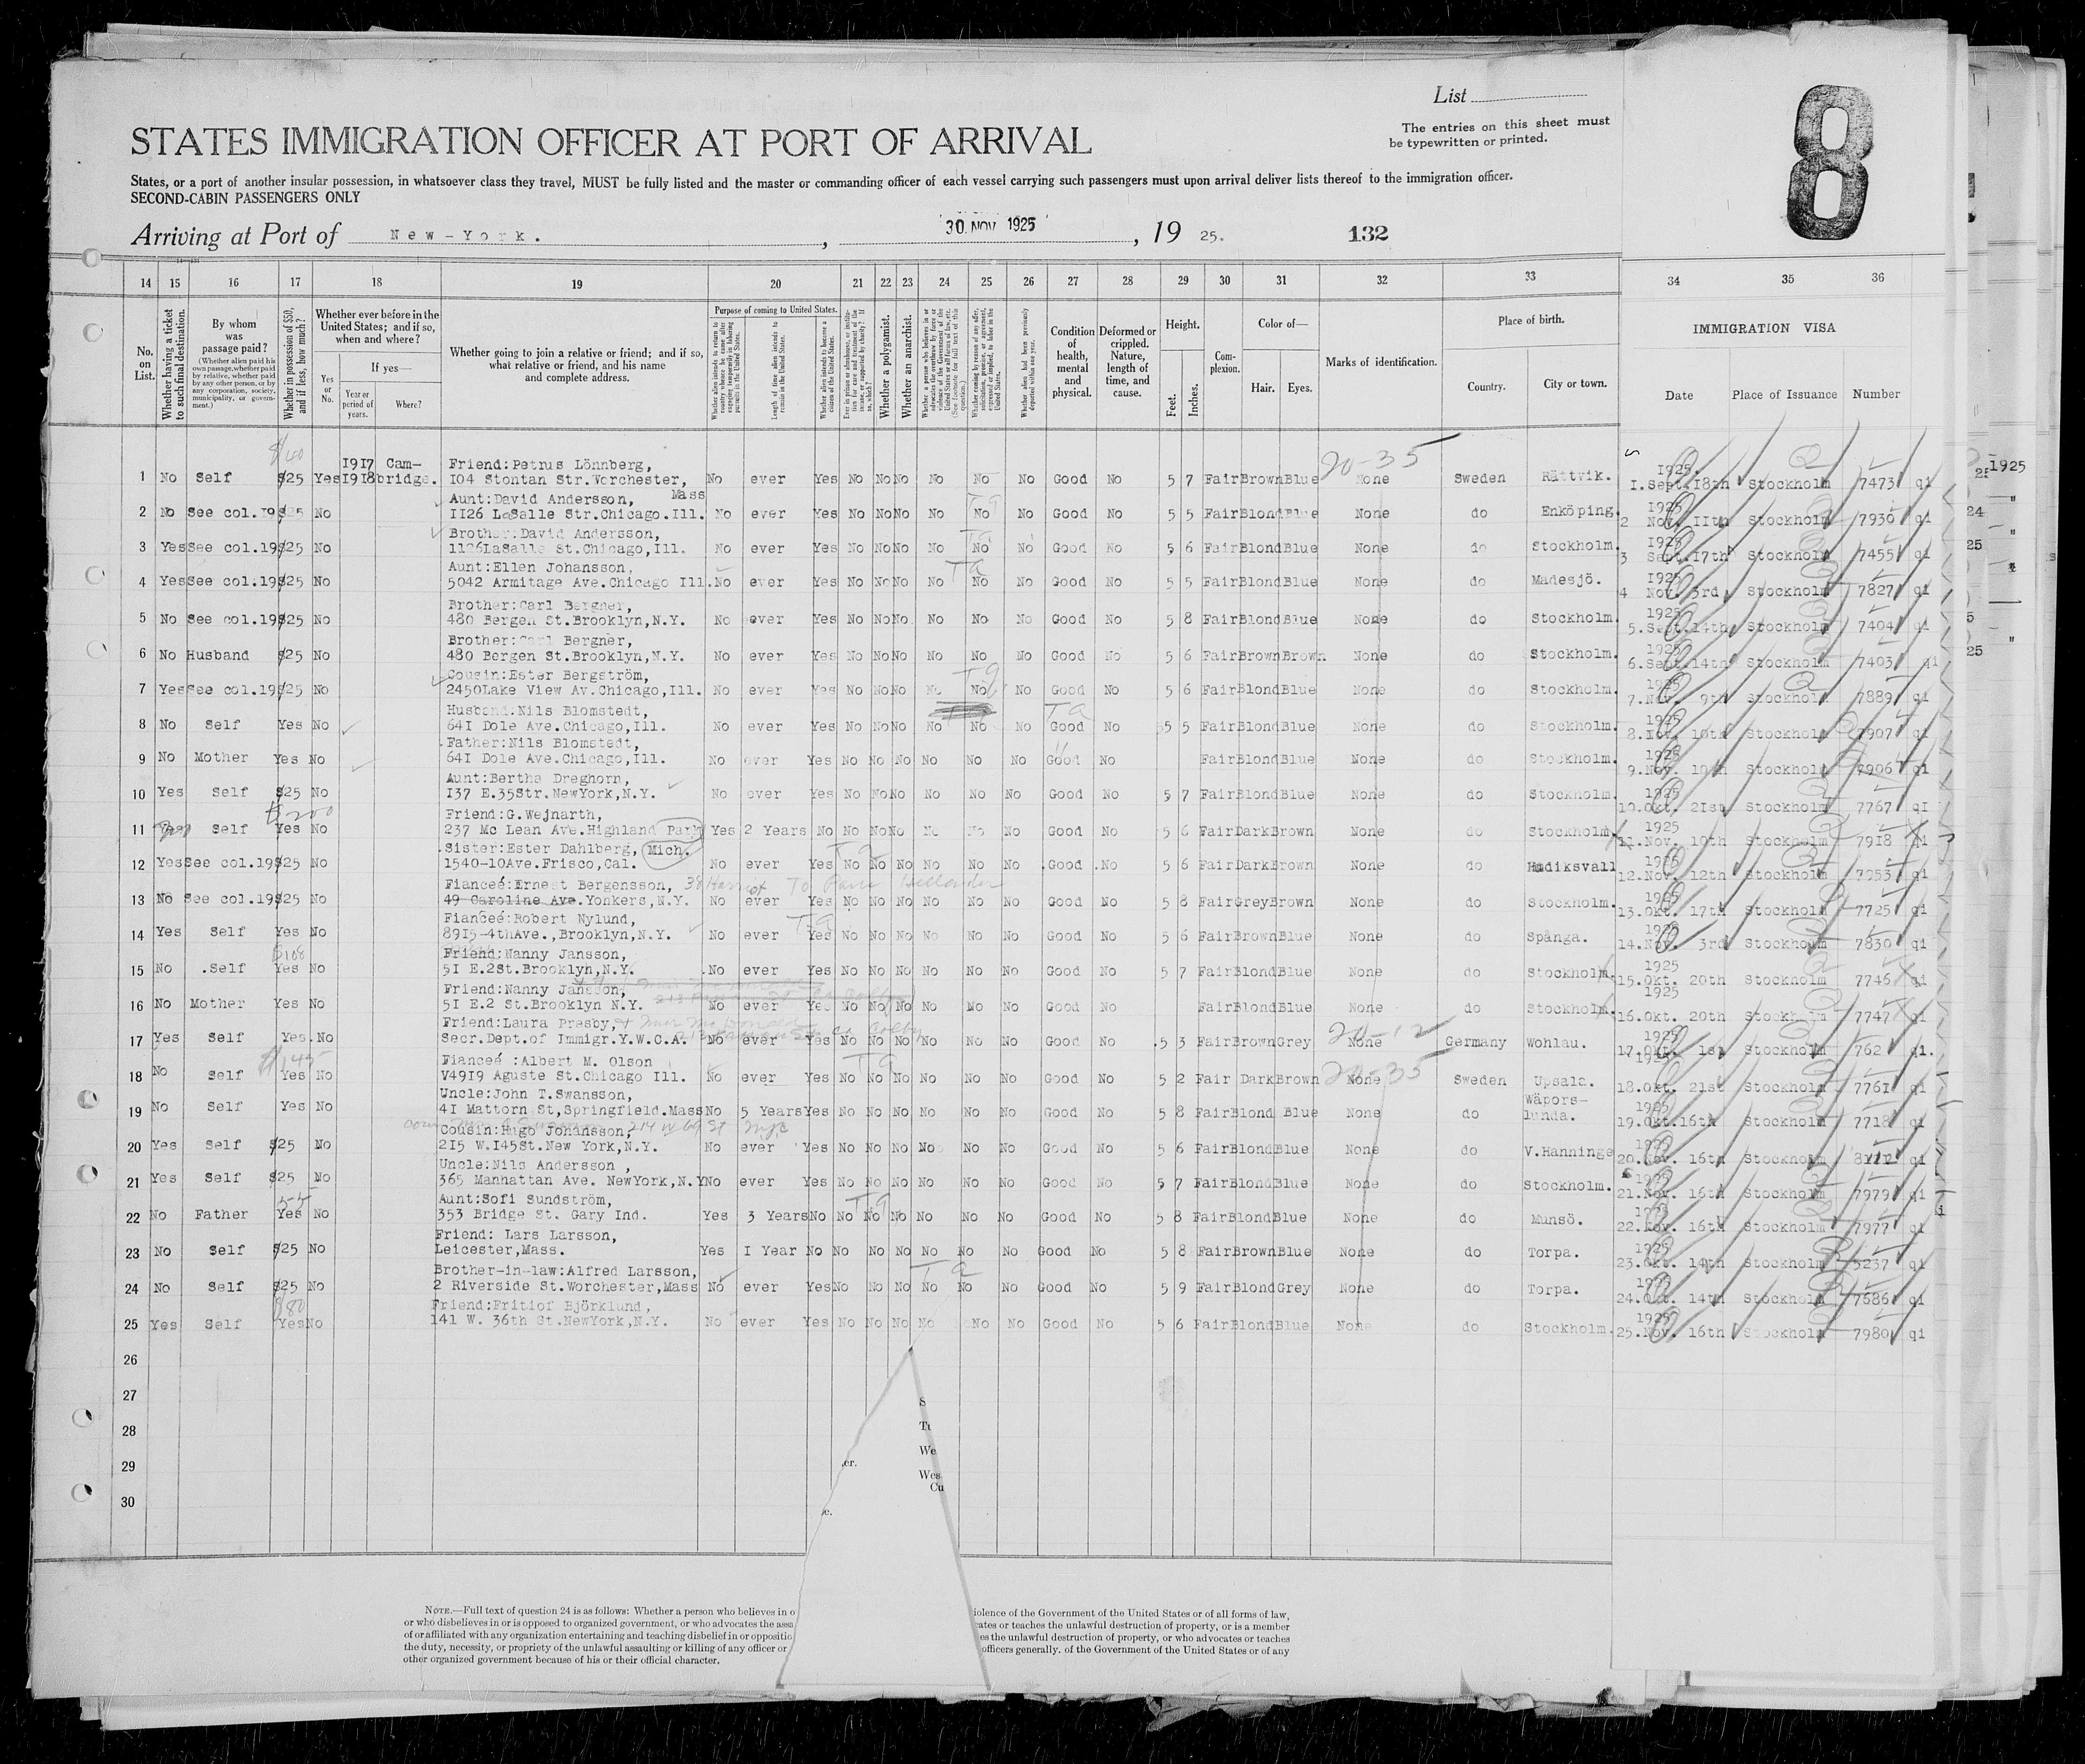 List
The entries on this sheet must
be typewritten or printed.
8
STATES IMMIGRATION OFFICER AT PORT OF ARRIVAL
States, or a port of another insular possession, in whatsoever class they travel, MUST be fully listed and the master or commanding officer of each vessel carrying such passengers must upon arrival deliver lists thereof to the immigration officer.
SECOND-CABIN PASSENGERS ONLY
Arriving at Port of New-York. , 30 NOV 1925 , 19 25. 132
14 15 16 17 18 19 20 21 22 23 24 25 26 27 28 29 30 31 32 33 34 35 36
No. on List.
Whether having a ticket to such final destination.
By whom was passage paid?
(Whether alien paid his own passage, whether paid by relative, whether paid by any other person, or by any corporation, society, municipality, or government.)
Whether in possession of $50, and if less, how much?
Whether ever before in the United States; and if so, when and where?
Yes or No.
If yes—
Year or period of years.
Where?
Whether going to join a relative or friend; and if so, what relative or friend, and his name and complete address.
Purpose of coming to United States.
Length of time alien intends to remain in the United States.
Whether alien intends to become a citizen of the United States.
Whether a polygamist.
Whether an anarchist.
Condition of health, mental and physical.
Deformed or crippled. Nature, length of time, and cause.
Height.
Feet.
Inches.
Complexion.
Color of—
Hair.
Eyes.
Marks of identification.
Place of birth.
Country.
City or town.
IMMIGRATION VISA
Date
Place of Issuance
Number
1 No Self $25 Yes 1917 1918 Cam-bridge. Friend:Petrus Lönnberg, 104 Stontan Str.Worchester, Mass No ever Yes No No No No No No Good No 5 7 Fair Brown Blue None Sweden Rättvik. 1925. 1.Sept.18th Stockholm 7473 qi
2 No See col.19 $25 No Aunt:David Andersson, 1126 LaSalle Str.Chicago.Ill. No ever Yes No No No No No No Good No 5 5 Fair Blond Blue None do Enköping. 1925 2 Nov.11th Stockholm 7930 qi
3 Yes See col.19 $25 No Brother:David Andersson, 1126LaSalle St.Chicago,Ill. No ever Yes No No No No No No Good No 5 6 Fair Blond Blue None do Stockholm. 1925 3 Sept.17th Stockholm 7455 qi
4 Yes See col.19 $25 No Aunt:Ellen Johansson, 5042 Armitage Ave.Chicago Ill. No ever Yes No No No No No No Good No 5 5 Fair Blond Blue None do Madesjö. 1925 4 Nov. 3rd Stockholm 7827 qi
5 No See col.19 $25 No Brother:Carl Bergner, 480 Bergen St.Brooklyn,N.Y. No ever Yes No No No No No No Good No 5 8 Fair Blond Blue None do Stockholm. 1925 5.Sept.14th Stockholm 7404 qi
6 No Husband $25 No Brother:Carl Bergner, 480 Bergen St.Brooklyn,N.Y. No ever Yes No No No No No No Good No 5 6 Fair Brown Brown None do Stockholm. 1925 6.Sept.14th Stockholm 7403 qi
7 Yes See col.19 $25 No Cousin:Ester Bergström, 2450Lake View Av.Chicago,Ill. No ever Yes No No No No No No Good No 5 6 Fair Blond Blue None do Stockholm. 1925 7.Nov. 9th Stockholm 7889 qi
8 No Self Yes No Husband:Nils Blomstedt, 641 Dole Ave.Chicago,Ill. No ever Yes No No No No No No Good No 5 5 Fair Blond Blue None do Stockholm. 1925 8.Nov. 10th Stockholm 7907 qi
9 No Mother Yes No Father:Nils Blomstedt, 641 Dole Ave.Chicago,Ill. No ever Yes No No No No No No Good No Fair Blond Blue None do Stockholm. 1925 9.Nov. 10th Stockholm 7906 qi
10 Yes Self $25 No Aunt:Bertha Dreghorn, 137 E.35Str.NewYork,N.Y. No ever Yes No No No No No No Good No 5 7 Fair Blond Blue None do Stockholm. 1925 10.Okt. 21st Stockholm 7767 qi
11 Yes Self $200 Yes No Friend:G.Wejnarth, 237 Mc Lean Ave.Highland Park Mich. Yes 2 Years No No No No No No No Good No 5 6 Fair Dark Brown None do Stockholm. 1925 11.Nov. 10th Stockholm 7918 qi
12 Yes See col.19 $25 No Sister:Ester Dahlberg, 1540-10Ave.Frisco,Cal. No ever Yes No No No No No No Good No 5 6 Fair Dark Brown None do Hudiksvall 1925 12.Nov. 12th Stockholm 7953 qi
13 No See col.19 $25 No Fianceé:Ernest Bergensson, 49 Caroline Ave.Yonkers,N.Y. No ever Yes No No No No No No Good No 5 8 Fair Grey Brown None do Stockholm. 1925 13.Okt. 17th Stockholm 7725 qi
14 Yes Self Yes No Fianceé:Robert Nylund, 8915-4thAve.,Brooklyn,N.Y. No ever Yes No No No No No No Good No 5 6 Fair Brown Blue None do Spånga. 1925 14.Nov. 3rd Stockholm 7830 qi
15 No Self $100 Yes No Friend:Nanny Jansson, 51 E.2St.Brooklyn,N.Y. No ever Yes No No No No No No Good No 5 7 Fair Blond Blue None do Stockholm. 1925 15.Okt. 20th Stockholm 7746 qi
16 No Mother Yes No Friend:Nanny Jansson, 51 E.2 St.Brooklyn N.Y. No ever Yes No No No No No No Good No Fair Blond Blue None do Stockholm. 1925 16.Okt. 20th Stockholm 7747 qi
17 Yes Self Yes No Friend:Laura Presby, Secr.Dept.of Immigr.Y.W.C.A. No ever Yes No No No No No No Good No 5 3 Fair Brown Grey None Germany Wohlau. 1925 17.Okt. 1st Stockholm 762 qi.
18 No Self $145 Yes No Fianceé :Albert M. Olson V4919 Aguste St.Chicago Ill. No ever Yes No No No No No No Good No 5 2 Fair Dark Brown None 20-35 Sweden Upsala. 1925 18.Okt. 21st Stockholm 7761 qi
19 No Self Yes No Uncle:John T.Swansson, 41 Mattorn St,Springfield.Mass No 5 Years Yes No No No No No No Good No 5 8 Fair Blond Blue None do Wäpors-lunda. 1925 19.Okt.16th Stockholm 7718 qi
20 Yes Self $25 No Cousin:Hugo Johansson, 215 W.145St.New York,N.Y. No ever Yes No No No No No No Good No 5 6 Fair Blond Blue None do V.Hanninge 1925 20.Nov. 16th Stockholm qi
21 Yes Self $25 No Uncle:Nils Andersson , 365 Manhattan Ave. NewYork,N.Y No ever Yes No No No No No No Good No 5 7 Fair Blond Blue None do Stockholm. 1925 21.Nov. 16th Stockholm 7979 qi
22 No Father 55 Yes No Aunt:Sofi Sundström, 353 Bridge St. Gary Ind. Yes 3 Years No No No No No No No Good No 5 8 Fair Blond Blue None do Munsö. 1925 22.Nov. 16th Stockholm 7977 qi
23 No Self $25 No Friend: Lars Larsson, Leicester,Mass. Yes 1 Year No No No No No No No Good No 5 8 Fair Brown Blue None do Torpa. 1925 23.Okt. 14th Stockholm 5237 qi
24 No Self $25 No Brother-in-law:Alfred Larsson, 2 Riverside St.Worchester,Mass No ever Yes No No No No No No Good No 5 9 Fair Blond Grey None do Torpa. 1925 24.Okt. 14th Stockholm 7686 qi
25 Yes Self $80 Yes No Friend:Fritiof Björklund, 141 W. 36th St.NewYork,N.Y. No ever Yes No No No No No No Good No 5 6 Fair Blond Blue None do Stockholm. 1925 25.Nov. 16th Stockholm 7980 qi
26
27
28
29
30
NOTE.—Full text of question 24 is as follows: Whether a person who believes in o iolence of the Government of the United States or of all forms of law,
or who disbelieves in or is opposed to organized government, or who advocates the assa cates or teaches the unlawful destruction of property, or is a member
of or affiliated with any organization entertaining and teaching disbelief in or oppositio es the unlawful destruction of property, or who advocates or teaches
the duty, necessity, or propriety of the unlawful assaulting or killing of any officer or officers generally. of the Government of the United States or of any
other organized government because of his or their official character.